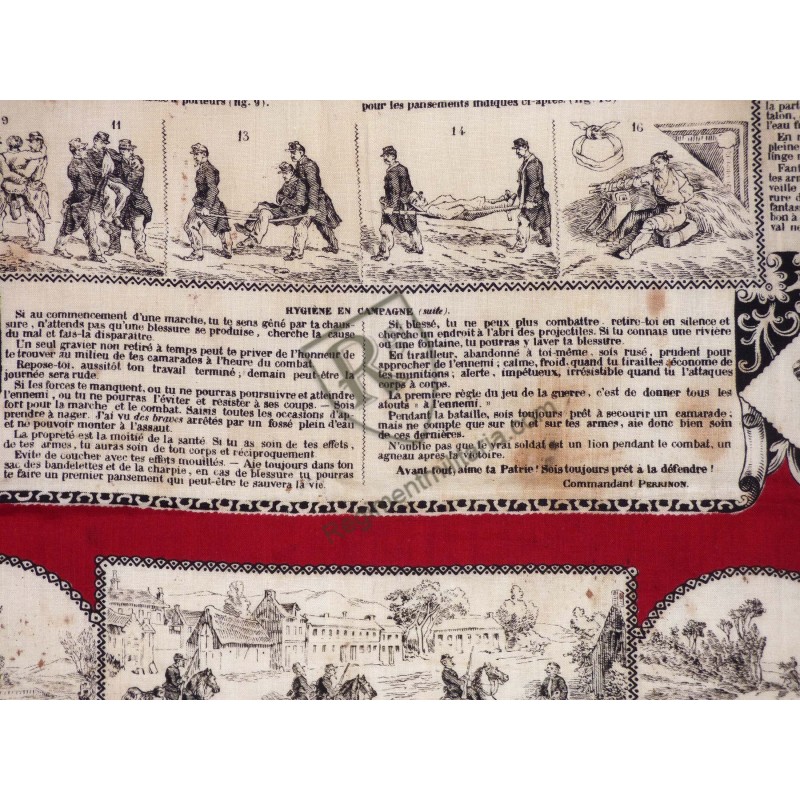 à porteurs (fig. 9).
pour les pansements indiqués ci-après.
9
11
13
14
16
la part
talon,
l'eau f
En
pleine
linge
Fant
tes ar
veille
rure d
fantas
bon à
val ne
HYGIÈNE EN CAMPAGNE (suite).
Si au commencement d'une marche, tu te sens gêné par ta chaus-
sure, n'attends pas qu'une blessure se produise, cherche la cause
du mal et fais-la disparaître.
Un seul gravier non retiré à temps peut te priver de l'honneur de
te trouver au milieu de tes camarades à l'heure du combat
Repose-toi, aussitôt ton travail terminé; demain peut être la
journée sera rude.
Si les forces te manquent, ou tu ne pourras poursuivre et atteindre
l'ennemi, ou tu ne pourras l'éviter et résister à ses coups. — Sois
fort pour la marche et le combat. Saisis toutes les occasions d'ap-
prendre à nager J'ai vu des braves arrêtés par un fossé plein d'eau
et ne pouvoir monter à l'assaut
La propreté est la moitié de la santé Si tu as soin de tes effets,
de tes armes, tu auras soin de ton corps et réciproquement
Evite de coucher avec tes effets mouillés. — Aie toujours dans ton
sac des bandelettes et de la charpie, en cas de blessure tu pourras
te faire un premier pansement qui peut-être te sauvera la vie.
Si, blessé, tu ne peux plus combattre, retire-toi en silence et
cherche un endroit à l'abri des projectiles. Si tu connais une rivière
ou une fontaine, tu pourras y laver ta blessure.
En tirailleur, abandonné à toi-même, sois rusé, prudent pour
approcher de l'ennemi; calme, froid, quand tu tirailles, économe de
tes munitions; alerte, impétueux, irrésistible quand tu l'attaques
corps à corps.
La première règle du jeu de la guerre, c'est de donner tous les
atouts « à l'ennemi. »
Pendant la bataille, sois toujours prêt à secourir un camarade;
mais ne compte que sur toi et sur tes armes, aie donc bien soin
de ces dernières.
N'oublie pas que le vrai soldat est un lion pendant le combat, un
agneau après la victoire.
Avant tout, aime ta Patrie! Sois toujours prêt à la défendre!
Commandant PERRINON.